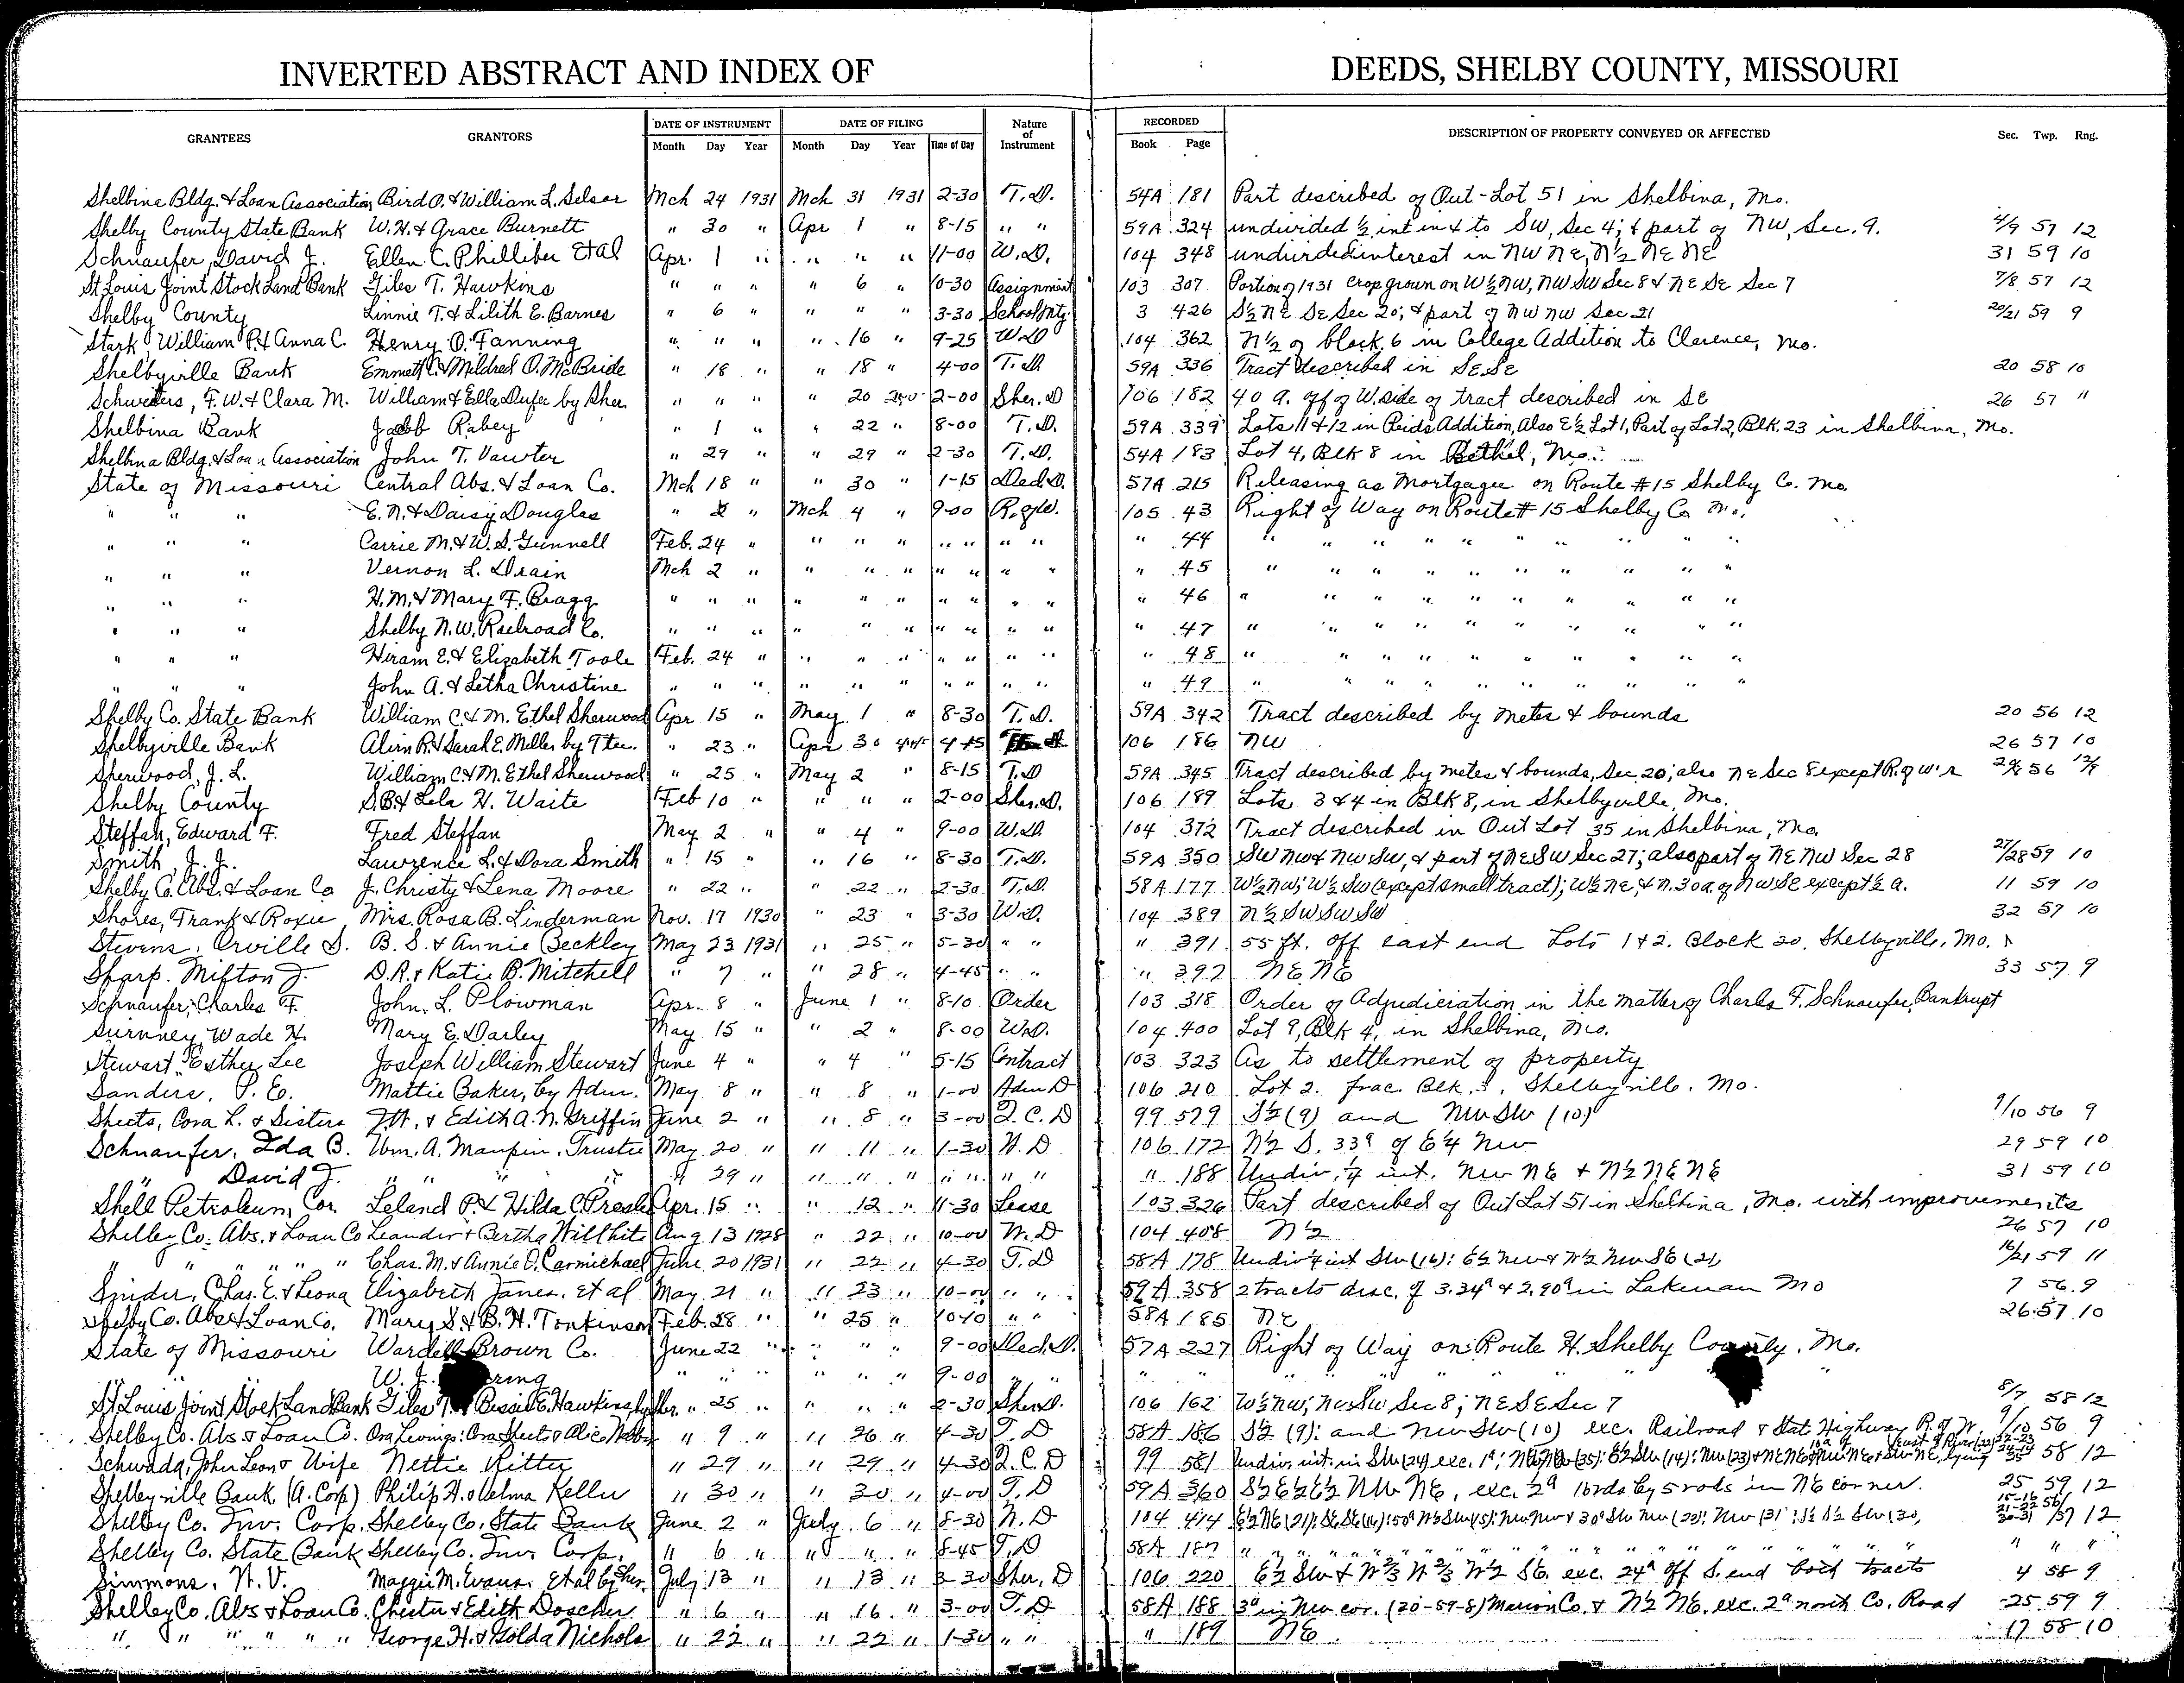 INVERTED ABSTRACT AND INDEX OF DEEDS, SHELBY COUNTY, MISSOURI
GRANTEES GRANTORS DATE OF INSTRUMENT Month Day Year DATE OF FILING Month Day Year Time of Day Nature of Instrument RECORDED Book Page DESCRIPTION OF PROPERTY CONVEYED OR AFFECTED Sec. Twp. Rng.
Shelbina Bldg. & Loan Association Bird O. & William L. Selsor Mch 24 1931 Mch 31 1931 2-30 T.D. 54A 181 Part described of Out-Lot 51 in Shelbina, Mo.
Shelby County State Bank W.H. & Grace Burnett " 30 " Apr 1 " 8-15 " " 59A 324 undivided ½ int in & to SW, Sec 4; & part of NW, Sec. 9. 4/9 57 12
Schnaufer, David J. Ellen C. Philliber Et al Apr. 1 " " " " 11-00 W.D. 104 348 undivided interest in NW NE, N½ NE NE 31 59 10
St Louis Joint Stock Land Bank Giles T. Hawkins " " " " 6 " 10-30 Assignment 103 307 Portion of 1931 crop grown on W½ NW, NW SW Sec 8 & NE SE Sec 7 7/8 57 12
Shelby County Linnie T. & Lilith E. Barnes " 6 " " " " 3-30 School Mtg. 3 426 S½ NE SE Sec 20; & part of NW NW Sec 21 20/21 59 9
Stark, William P. & Anna C. Henry O. Fanning " " " " 16 " 9-25 W.D 104 362 N½ of block 6 in College Addition to Clarence, Mo.
Shelbyville Bank Emmett C. & Mildred O. McBride " 18 " " 18 " 4-00 T.D. 59A 336 Tract described in SE SE 20 58 10
Schwieters, F.W. & Clara M. William & Ella Dufer by Sher. " " " " 20 2-00 Sher. D 106 182 40 a. off of W. side of tract described in SE 26 57 "
Shelbina Bank Jacob Rabey " 1 " " 22 " 8-00 T.D. 59A 339 Lots 11 & 12 in Reids Addition, Also E½ Lot 1, Part of Lot 2, Blk. 23 in Shelbina, Mo.
Shelbina Bldg. & Loan Association John T. Vawter " 29 " " 29 " 2-30 T.D. 54A 183 Lot 4, Blk 8 in Bethel, Mo.
State of Missouri Central Abs. & Loan Co. Mch 18 " " 30 " 1-15 Ded. D. 57A 215 Releasing as Mortgagee on Route #15 Shelby Co. Mo.
" " " E.N. & Daisy Douglas " 2 " Mch 4 " 9-00 R. of W. 105 43 Right of Way on Route # 15 Shelby Co Mo.
" " " Carrie M. & W.S. Gunnell Feb. 24 " " " " " " " " " 44 " " " " " " " " "
" " " Vernon L. Drain Mch 2 " " " " " " " " " 45 " " " " " " " " "
" " " H.M. & Mary F. Bragg " " " " " " " " " " " 46 " " " " " " " " "
" " " Shelby N.W. Railroad Co. " " " " " " " " " " " 47 " " " " " " " " "
" " " Hiram E. & Elizabeth Toole Feb. 24 " " " " " " " " " 48 " " " " " " " " "
" " " John A. & Letha Christine " " " " " " " " " " " 49 " " " " " " " " "
Shelby Co. State Bank William C. & M. Ethel Sherwood Apr 15 " May 1 " 8-30 T.D. 59A 342 Tract described by metes & bounds 20 56 12
Shelbyville Bank Alvin R. & Sarah E. Miller by Ttee. " 23 " Apr 30 4-15 106 186 NW 26 57 10
Sherwood, J.L. William C. & M. Ethel Sherwood " 25 " May 2 " 8-15 T.D 59A 345 Tract described by metes & bounds, Sec. 20; also NE Sec 8 except R. of W. 56
Shelby County S.B. & Lela H. Waite Feb 10 " " " " 2-00 Sher. D. 106 189 Lots 3 & 4 in Blk 8, in Shelbyville, Mo.
Steffan, Edward F. Fred Steffan May 2 " " 4 " 9-00 W.D. 104 372 Tract described in Out Lot 35 in Shelbina, Mo.
Smith, J.J. Lawrence L. & Dora Smith " 15 " " 16 " 8-30 T.D. 59A 350 SW NW & NW SW, & part of NE SW Sec 27; also part of NE NW Sec 28 27/28 59 10
Shelby Co. Abs. & Loan Co J. Christy & Lena Moore " 22 " " 22 " 2-30 T.D. 58A 177 W½ NW; W½ SW (except small tract); W½ NE, & N. 30 a. of NW SE except ½ a. 11 59 10
Shores, Frank & Roxie Mrs. Rosa B. Linderman Nov. 17 1930 " 23 " 3-30 W.D. 104 389 N½ SW SW SW 32 57 10
Stevens, Orville S. B.S. & Annie Beckley May 23 1931 " 25 " 5-30 " " " 391 55 ft. off east end Lots 1 & 2. Block 20. Shelbyville, Mo.
Sharp, Milton J. D.R. & Katie B. Mitchell " 7 " " 28 " 4-45 " " " 397 NE NE 33 57 9
Schnaufer, Charles F. John L. Plowman Apr. 8 " June 1 " 8-10 Order 103 318 Order of Adjudiciation in the matter of Charles F. Schnaufer, Bankrupt
Surnney, Wade H. Mary E. Darley May 15 " " 2 " 8-00 W.D. 104 400 Lot 9, Blk 4, in Shelbina, Mo.
Stewart, Esther Lee Joseph William Stewart June 4 " " 4 " 5-15 Contract 103 323 As to settlement of property
Sanders, P.E. Mattie Baker, by Adm. May 8 " " 8 " 1-00 Adm D 106 210 Lot 2. frac. Blk. 3, Shelbyville. Mo.
Sheets, Cora L. & Sisters & Edith A.N. Griffin June 2 " " 8 " 3-00 Q.C.D 99 579 S½ (9) and NW SW (10) 9/10 56 9
Schnaufer, Ida B. Wm. A. Maupin, Trustee May 20 " " 11 " 1-30 W.D 106 172 N½ S. 33ª of E¼ NW 29 59 10
" David J. " " " " 29 " " " " " " " " " 188 Undiv. ¼ int. NW NE & N½ NE NE 31 59 10
Shell Petroleum Cor. Leland P. & Hilda C. Presle Apr. 15 " " 12 " 11-30 Lease 103 326 Part described of Out Lot 51 in Shelbina, Mo. with improvements
Shelby Co. Abs. & Loan Co Leander & Bertha Willhite Aug 13 1928 " 22 " 10-00 W.D 104 408 N½ 26 57 10
" " " " " " Chas. M. & Annie O. Carmichael June 20 1931 " 22 " 4-30 T.D 58A 178 Undiv ¼ int SW (16): E½ NW & W½ NW SE (21) 16/21 59 11
Snider, Chas. E. & Leona Elizabeth Janes, et al May 21 " " 23 " 10-00 " " 59A 358 2 tracts desc. of 3.34ª & 2.90ª in Lakenan Mo 7 56 9
Shelby Co. Abs & Loan Co. Mary S. & B.H. Tonkinson Feb. 28 " " 25 " 10-10 " " 58A 185 NE 26 57 10
State of Missouri Wardell Brown Co. June 22 " " " " 9-00 Ded. D. 57A 227 Right of Way on Route H. Shelby County, Mo.
" " " W.J. " " " " " " 9-00 " " " " " " " " "
St Louis Joint Stock Land Bank Giles T. & Bessie E. Hawkins by Sher. " 25 " " " " 2-30 Sher D. 106 162 W½ NW; NW SW Sec 8; NE SE Sec 7 8/7 58 12
Shelby Co. Abs & Loan Co. Ora Levings; Cora Sheets & Alice " 9 " " 26 " 4-30 T.D 58A 186 S½ (9): and NW SW (10) exc. Railroad & Stat Highway R of W. 9/10 56 9
Schwada, John Leon & Wife Nettie Ritter " 29 " " 29 " 4-30 Q.C.D 99 581 Undiv. int. in SW (24) exc. 1ª; (35): E½ SW (14): NW (23) & NE NE 58 12
Shelbyville Bank (A. Corp) Philip H. & Velma Keller " 30 " " 30 " 4-00 T.D 59A 360 S½ E½ E½ NW NE, exc. 2ª 16 rds by 5 rods in NE corner. 25 59 12
Shelby Co. Inv. Corp. Shelby Co. State Bank June 2 " July 6 " 8-30 W.D 104 414 E½ NE (21): SE SE (16): 50ª W½ SW (15): NW NW & 30ª SW NW (22): NW (31): S½ S½ SW (30) 12
Shelby Co. State Bank Shelby Co. Inv. Corp. " 6 " " " " 8-45 T.D 58A 187 " " " " " " " " " " " " " " "
Simmons, W.V. Maggie M. Evans, et al by Sher. July 13 " " 13 " 3-30 Sher. D 106 220 E½ SW & W⅔ W⅔ W½ SE. exc. 24ª off S. end said tracts 4 58 9
Shelby Co. Abs & Loan Co. Chester & Edith Doscher " 6 " " 16 " 3-00 T.D 58A 188 3ª in NW cor. (30-59-8) Marion Co. & N½ NE. exc. 2ª north Co. Road 25 59 9
" " " " " " George H. & Golda Nichols " 22 " " 22 " 1-30 " " " 189 NE 17 58 10